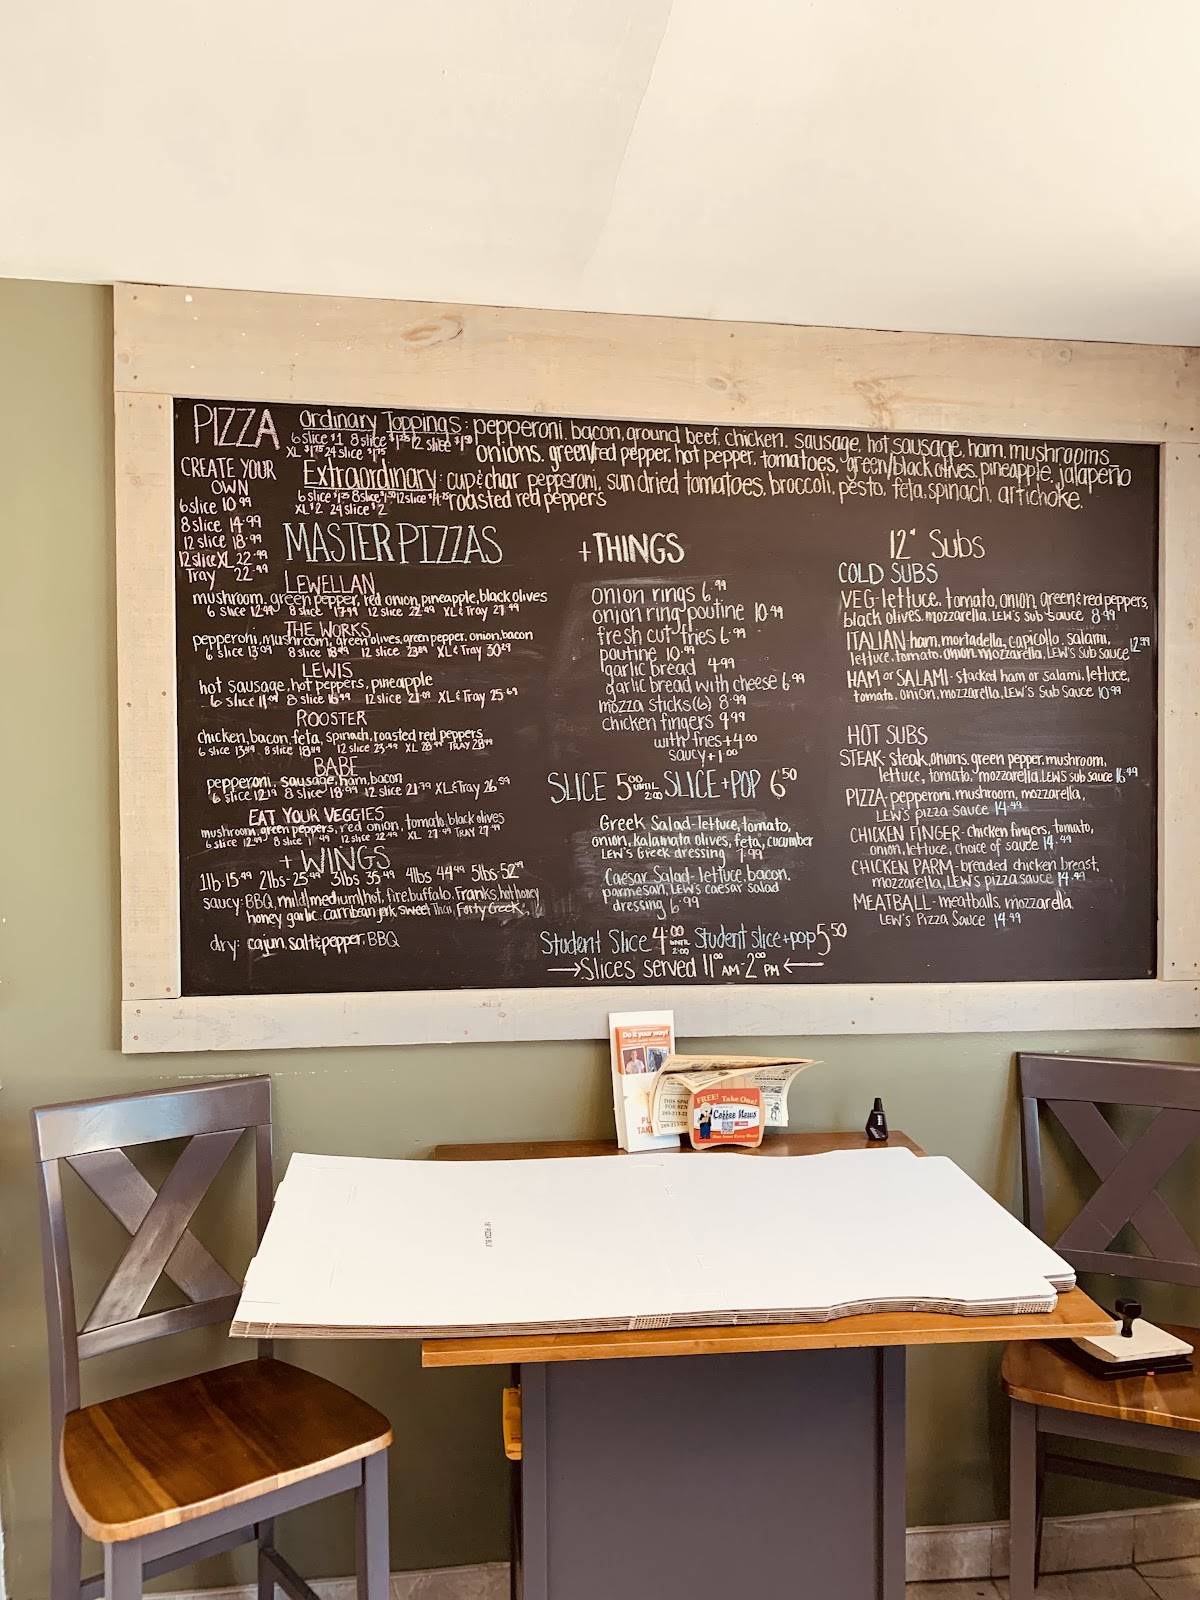 PIZZA
Ordinary Toppings: pepperoni, bacon, ground beef, chicken, sausage, hot sausage, ham, mushrooms
6 slice $1 8 slice $1.25 12 slice $1.50
XL $1.75 24 slice $1.75
onions, green/red pepper, hot pepper, tomatoes, green/black olives, pineapple, jalapeño
Extraordinary: cup & char pepperoni, sun dried tomatoes, broccoli, pesto, feta, spinach, artichoke,
6 slice $1.25 8 slice $1.50 12 slice
XL $2 24 slice $2
roasted red peppers
CREATE YOUR
OWN
6 slice 10.99
8 slice 14.99
12 slice 18.99
12 slice XL 22.99
Tray 22.99
MASTER PIZZAS
LEWELLAN
mushroom, green pepper, red onion, pineapple, black olives
6 slice 12.99 8 slice 17.99 12 slice 22.99 XL & Tray 27.99
THE WORKS
pepperoni, mushroom, green olives, green pepper, onion, bacon
6 slice 8 slice 12 slice XL & Tray
LEWIS
hot sausage, hot peppers, pineapple
6 slice 8 slice 12 slice XL & Tray 25.69
ROOSTER
chicken, bacon, feta, spinach, roasted red peppers
6 slice 8 slice 12 slice XL TRAY
BABE
pepperoni, sausage, ham, bacon
6 slice 8 slice 18.99 12 slice 21.79 XL & Tray 26.59
EAT YOUR VEGGIES
mushroom, green peppers, red onion, tomato, black olives
6 slice 12.99 8 slice 12 slice 22.99 XL 27.99 TRAY 27.99
+ WINGS
1lb-15.49 2lbs-25.99 3lbs 35.49 4lbs 44.49 5lbs-52.49
saucy: BBQ, mild/medium/hot, fire, buffalo, Franks, hot honey
honey garlic, carribean jerk, sweet Thai, Forty Creek
dry: cajun, salt & pepper, BBQ
+ THINGS
onion rings 6.99
onion ring poutine 10.49
fresh cut fries 6.99
poutine 10.99
garlic bread 4.99
garlic bread with cheese 6.99
mozza sticks (6) 8.99
chicken fingers 9.99
with fries + 4.00
saucy + 1.00
SLICE 5.00 UNTIL 2:00 SLICE + POP 6.50
Greek Salad- lettuce, tomato,
onion, kalamata olives, feta, cucumber
LEW'S Greek dressing 7.99
Caesar Salad- lettuce, bacon,
parmesan, LEW'S caesar salad
dressing 6.99
Student Slice 4.00 UNTIL 2:00 Student slice + pop 5.50
→ Slices served 11:00 AM - 2:00 PM ←
12" Subs
COLD SUBS
VEG- lettuce, tomato, onion, green & red peppers,
black olives, mozzarella, LEW'S Sub Sauce 8.99
ITALIAN- ham, mortadella, capicollo, salami,
lettuce, tomato, onion, mozzarella, LEW'S Sub Sauce 12.99
HAM or SALAMI- stacked ham or salami, lettuce,
tomato, onion, mozzarella, LEW'S Sub Sauce 10.99
HOT SUBS
STEAK- steak, onions, green pepper, mushroom,
lettuce, tomato, mozzarella, LEWS sub sauce 16.49
PIZZA- pepperoni, mushroom, mozzarella,
LEW'S pizza sauce 14.49
CHICKEN FINGER- chicken fingers, tomato,
onion, lettuce, choice of sauce 14.49
CHICKEN PARM- breaded chicken breast,
mozzarella, LEW'S pizza sauce 14.49
MEATBALL- meatballs, mozzarella,
LEW'S Pizza Sauce 14.99
Do it your way!
THIS SPACE
FOR RENT
FREE! Take One!
Coffee News